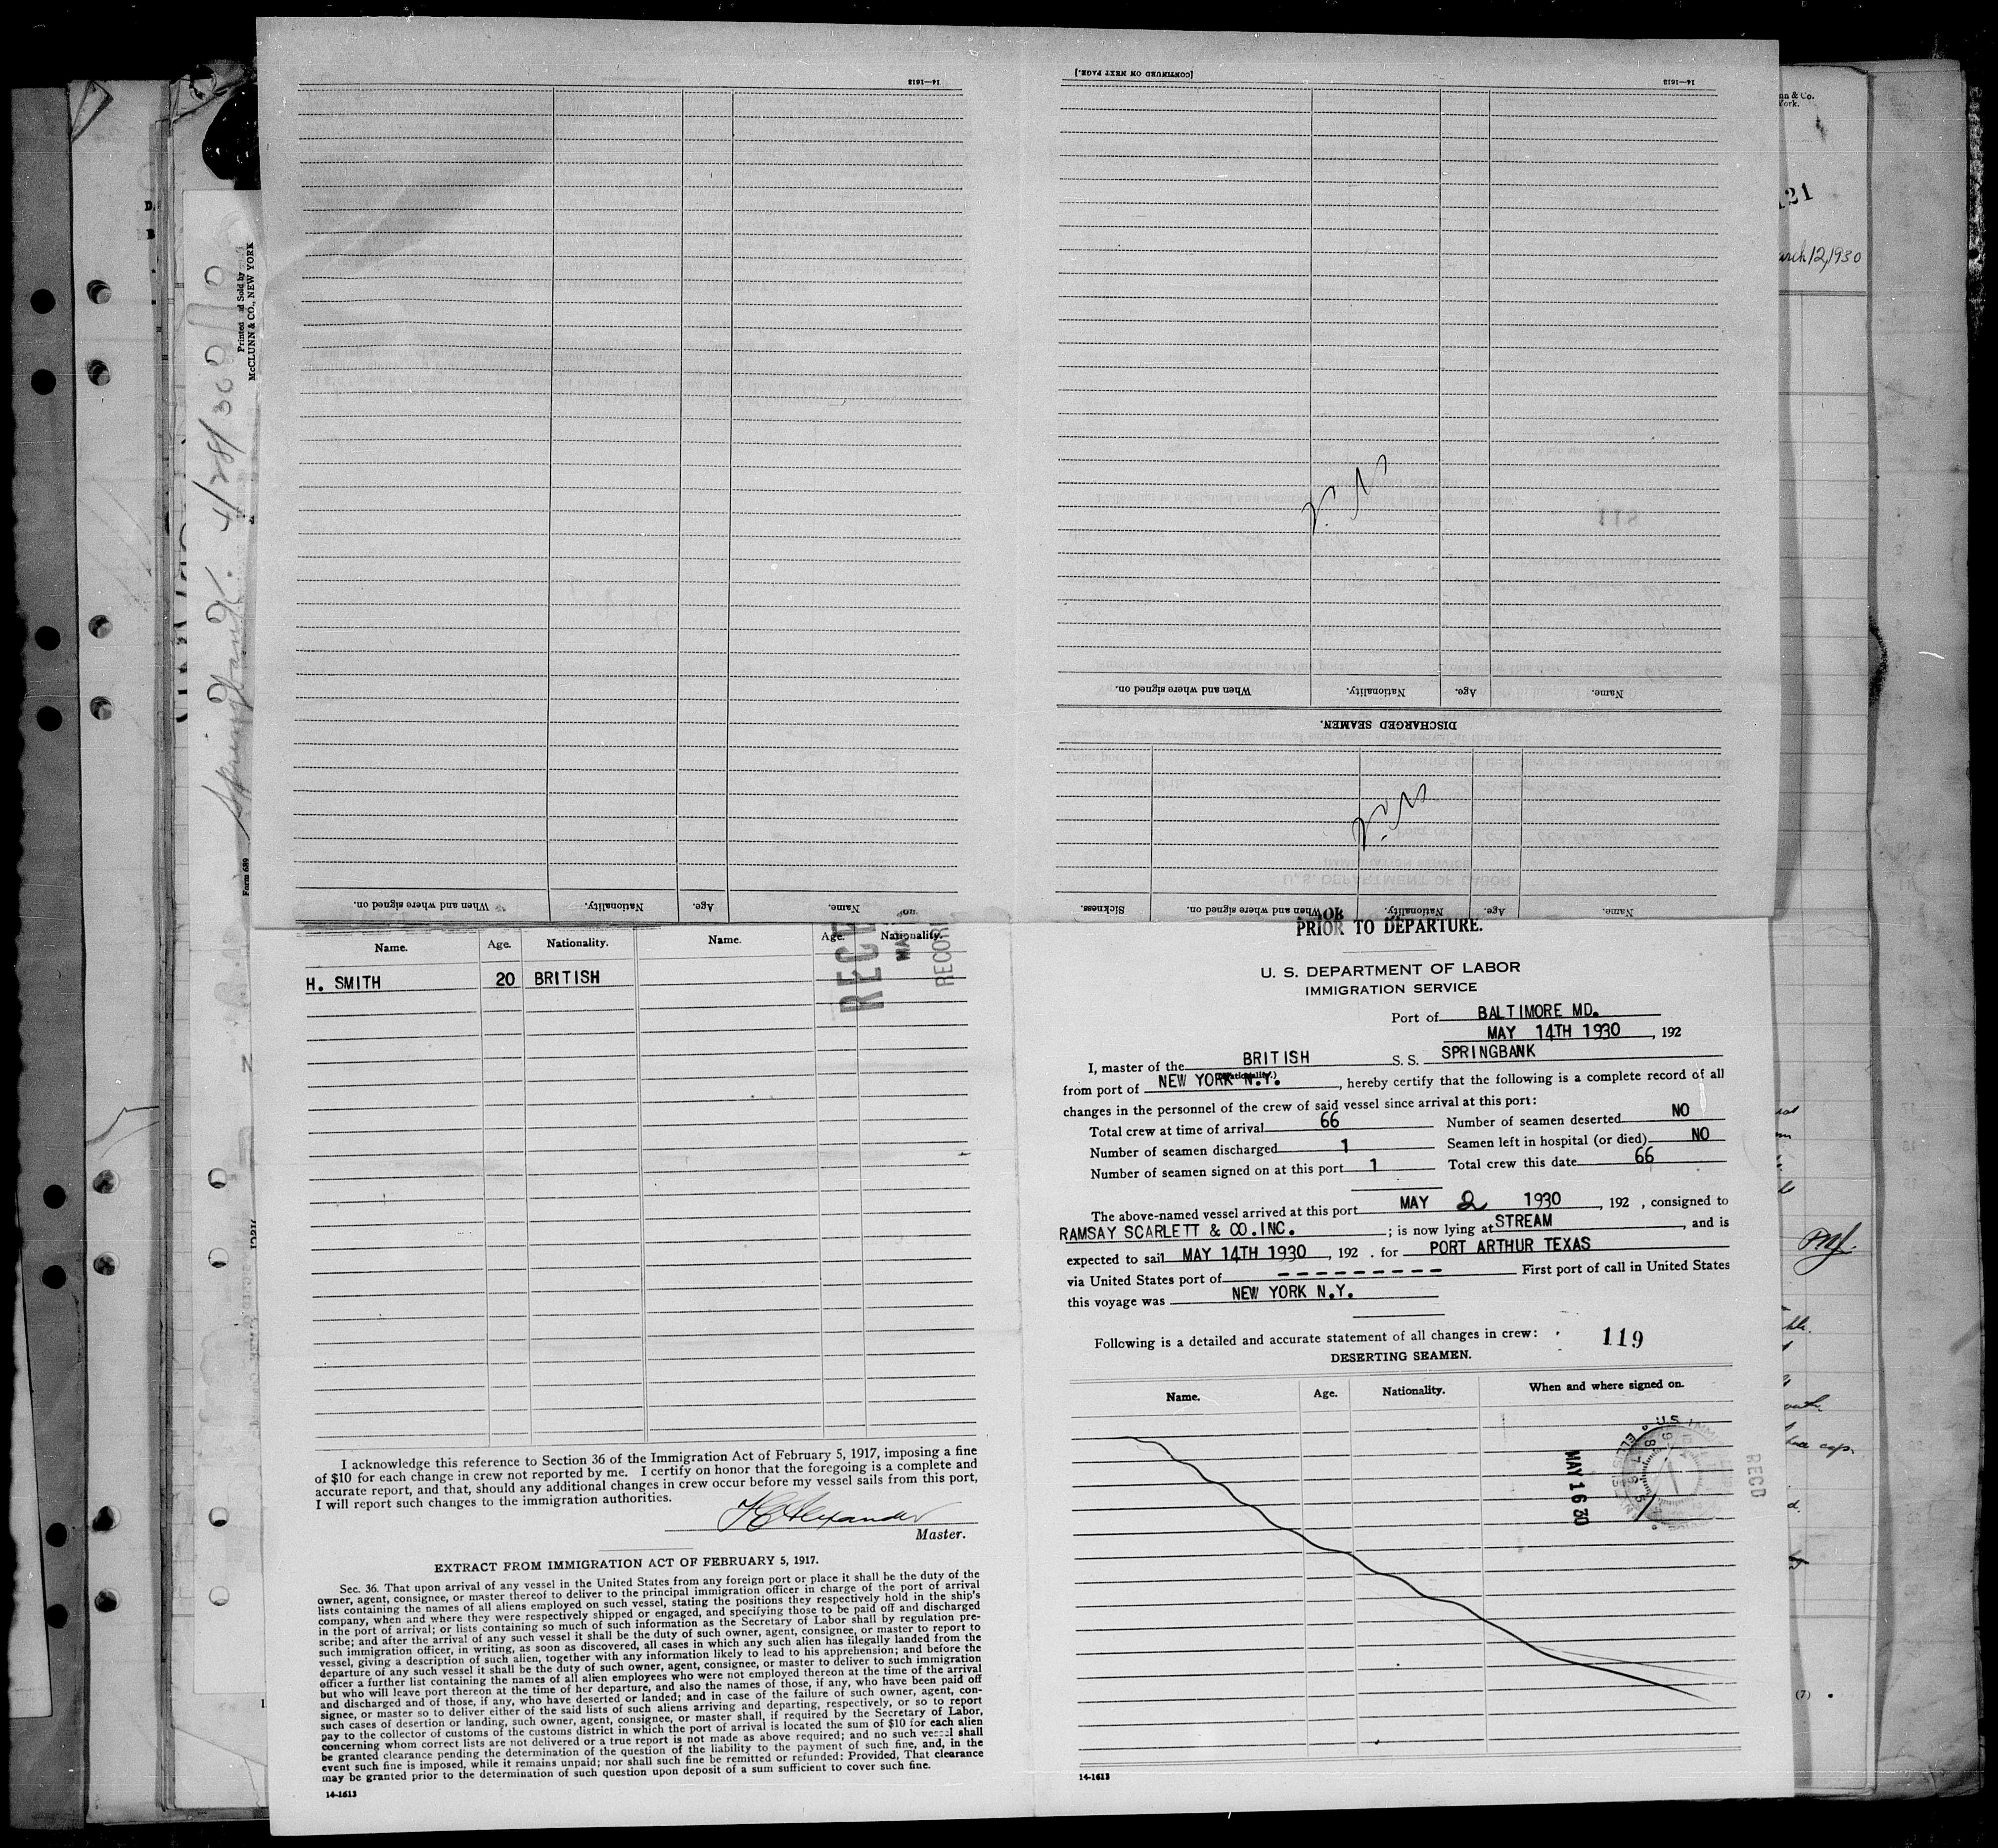 14—1613
[CONTINUED ON NEXT PAGE.]
14—1613
When and where signed on.
Nationality.
Age.
Name.
DISCHARGED SEAMEN.
When and where signed on.
Nationality.
Age.
Name.
Sickness.
When and where signed on.
Nationality.
Age.
Name.
Printed and Sold by
McCLUNN & CO., NEW YORK
Springbank. 4/28/30
Form 689
nn & Co.
York.
121
March 12, 1930
Name.
Age.
Nationality.
Name.
Age.
Nationality.
H. SMITH 20 BRITISH
RECORD
I acknowledge this reference to Section 36 of the Immigration Act of February 5, 1917, imposing a fine
of $10 for each change in crew not reported by me. I certify on honor that the foregoing is a complete and
accurate report, and that, should any additional changes in crew occur before my vessel sails from this port,
I will report such changes to the immigration authorities.
Alexander
Master.
EXTRACT FROM IMMIGRATION ACT OF FEBRUARY 5, 1917.
Sec. 36. That upon arrival of any vessel in the United States from any foreign port or place it shall be the duty of the
owner, agent, consignee, or master thereof to deliver to the principal immigration officer in charge of the port of arrival
lists containing the names of all aliens employed on such vessel, stating the positions they respectively hold in the ship's
company, when and where they were respectively shipped or engaged, and specifying those to be paid off and discharged
in the port of arrival; or lists containing so much of such information as the Secretary of Labor shall by regulation pre-
scribe; and after the arrival of any such vessel it shall be the duty of such owner, agent, consignee, or master to report to
such immigration officer, in writing, as soon as discovered, all cases in which any such alien has illegally landed from the
vessel, giving a description of such alien, together with any information likely to lead to his apprehension; and before the
departure of any such vessel it shall be the duty of such owner, agent, consignee, or master to deliver to such immigration
officer a further list containing the names of all alien employees who were not employed thereon at the time of the arrival
but who will leave port thereon at the time of her departure, and also the names of those, if any, who have been paid off
and discharged and of those, if any, who have deserted or landed; and in case of the failure of such owner, agent, con-
signee, or master so to deliver either of the said lists of such aliens arriving and departing, respectively, or so to report
such cases of desertion or landing, such owner, agent, consignee, or master shall, if required by the Secretary of Labor,
pay to the collector of customs of the customs district in which the port of arrival is located the sum of $10 for each alien
concerning whom correct lists are not delivered or a true report is not made as above required; and no such vessel shall
be granted clearance pending the determination of the question of the liability to the payment of such fine, and, in the
event such fine is imposed, while it remains unpaid; nor shall such fine be remitted or refunded: Provided, That clearance
may be granted prior to the determination of such question upon deposit of a sum sufficient to cover such fine.
14-1613
PRIOR TO DEPARTURE.
U. S. DEPARTMENT OF LABOR
IMMIGRATION SERVICE
Port of BALTIMORE MD.
MAY 14TH 1930, 192
I, master of the BRITISH S. S. SPRINGBANK
(Nationality.)
from port of NEW YORK N.Y., hereby certify that the following is a complete record of all
changes in the personnel of the crew of said vessel since arrival at this port:
Total crew at time of arrival 66 Number of seamen deserted NO
Number of seamen discharged 1 Seamen left in hospital (or died) NO
Number of seamen signed on at this port 1 Total crew this date 66
The above-named vessel arrived at this port MAY 2 1930, 192 , consigned to
RAMSAY SCARLETT & CO.INC. ; is now lying at STREAM, and is
expected to sail MAY 14TH 1930, 192 . for PORT ARTHUR TEXAS
via United States port of --------- First port of call in United States
this voyage was NEW YORK N.Y.
Following is a detailed and accurate statement of all changes in crew:
119
DESERTING SEAMEN.
Name.
Age.
Nationality.
When and where signed on.
MAY 16 30
RECD
14-1613
(7)